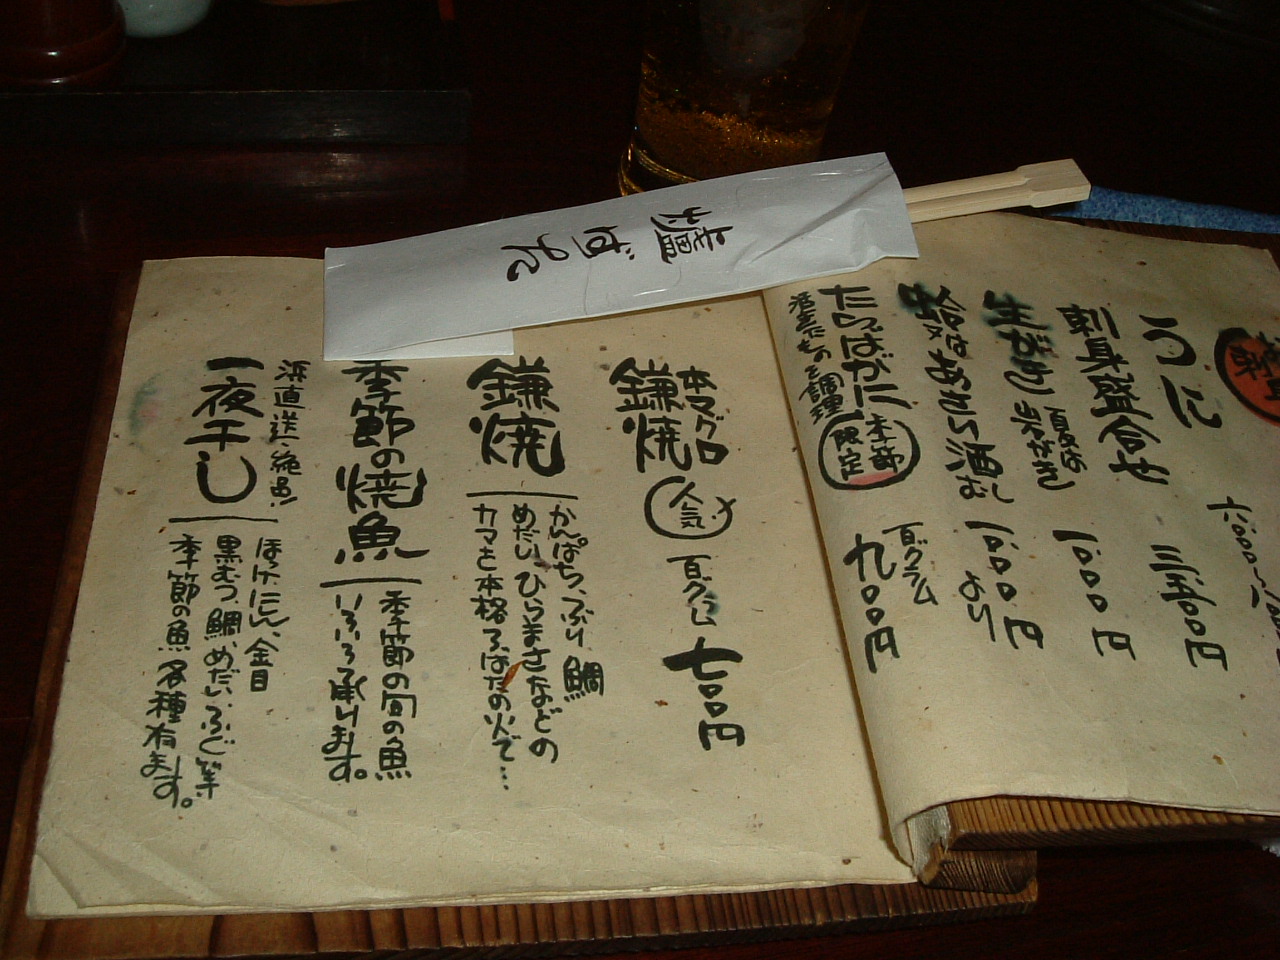 炉ばた
うに
刺身盛合せ 三、五〇〇円
生がき 夏のみ 岩がき 一、〇〇〇円
蛤又はあさり酒むし 一、〇〇〇円より
たらばがに 季節限定 百グラム 九〇〇円
活きたものを調理
本マグロ
鎌焼 人気 百グラム 七〇〇円
鎌焼
かんぱち、ぶり、鯛
めだい、ひらまさなどの
カマを本格ろばたの火で…
季節の焼魚
季節の旬の魚
いろいろ承ります。
浜直送・絶品!
一夜干し
ほっけ、にしん、金目
黒むつ、鯛、めだい、ふぐ等
季節の魚各種有ます。